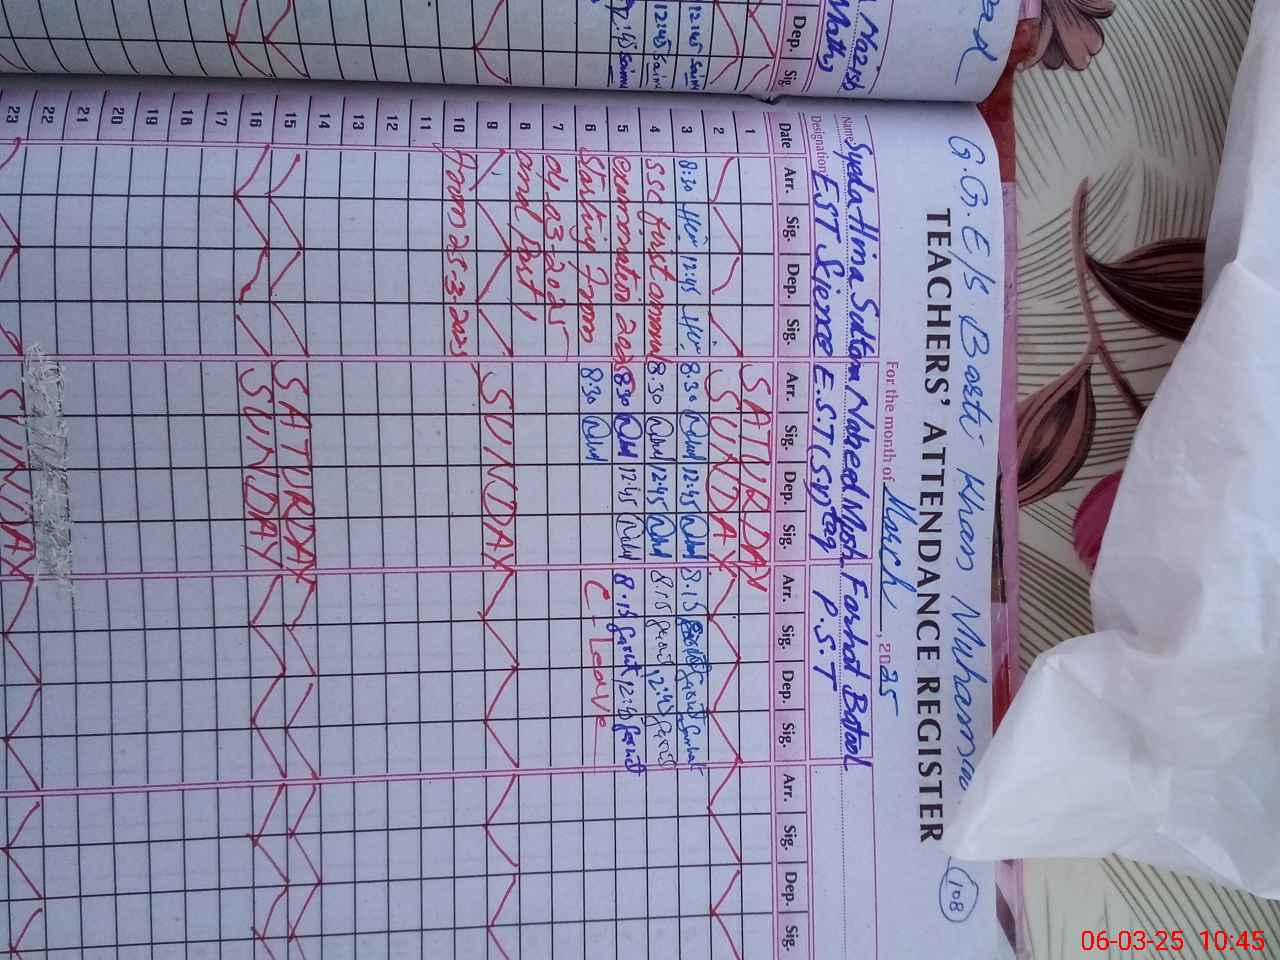 G.G.E/S Basti Khan Muhamma
108
TEACHERS' ATTENDANCE REGISTER
For the month of March, 2025
Name Syeda Hina Sultana Naheed Mush Farhat Batool
Designation EST Science E.S.T (Sy) taq P.S.T
Date Arr. Sig. Dep. Sig. Arr. Sig. Dep. Sig. Arr. Sig. Dep. Sig. Arr. Sig. Dep. Sig.
1 SATURDAY
2 SUNDAY
3 8:30 12:45 8.30 12:45 8.15
4 SSC first annual 8.30 12:45 8.15 12:45
5 examination 2025 8:30 12:45 8.15 12:45
6 Starting from 8:30 C-Leave
7 04-03-2025
8 and last
9 SUNDAY
10 from 25-3-2025
11
12
13
14
15 SATURDAY
16 SUNDAY
17
18
19
20
21
22
23 SUNDAY
Dep. Sig
12:45
12:45
12:45
06-03-25 10:45